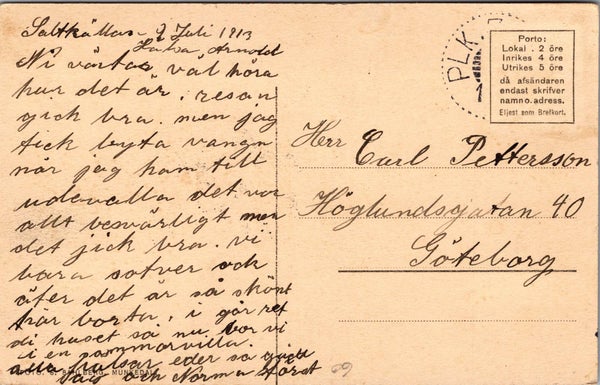 Saltkällan - 9 Juli 1913
Hälsa Arnold
Ni väntar väl höra
hur det är. resan
gick bra. men jag
fick byta vangn
när jag kam till
udevalla det var
allt besvärligt men
det jick bra. vi
bara sover och
äter det är så skönt
här borta. i går ret
di huset så nu bor vi
i en sommarvilla.
alla halsar eder så gott
och Norma först
Herr Carl Pettersson
Höglundsgatan 40
Göteborg
PLK.
Porto:
Lokal . 2 öre
Inrikes 4 öre
Utrikes 5 öre
då afsändaren
endast skrifver
namn o. adress.
Eljest som Brefkort.